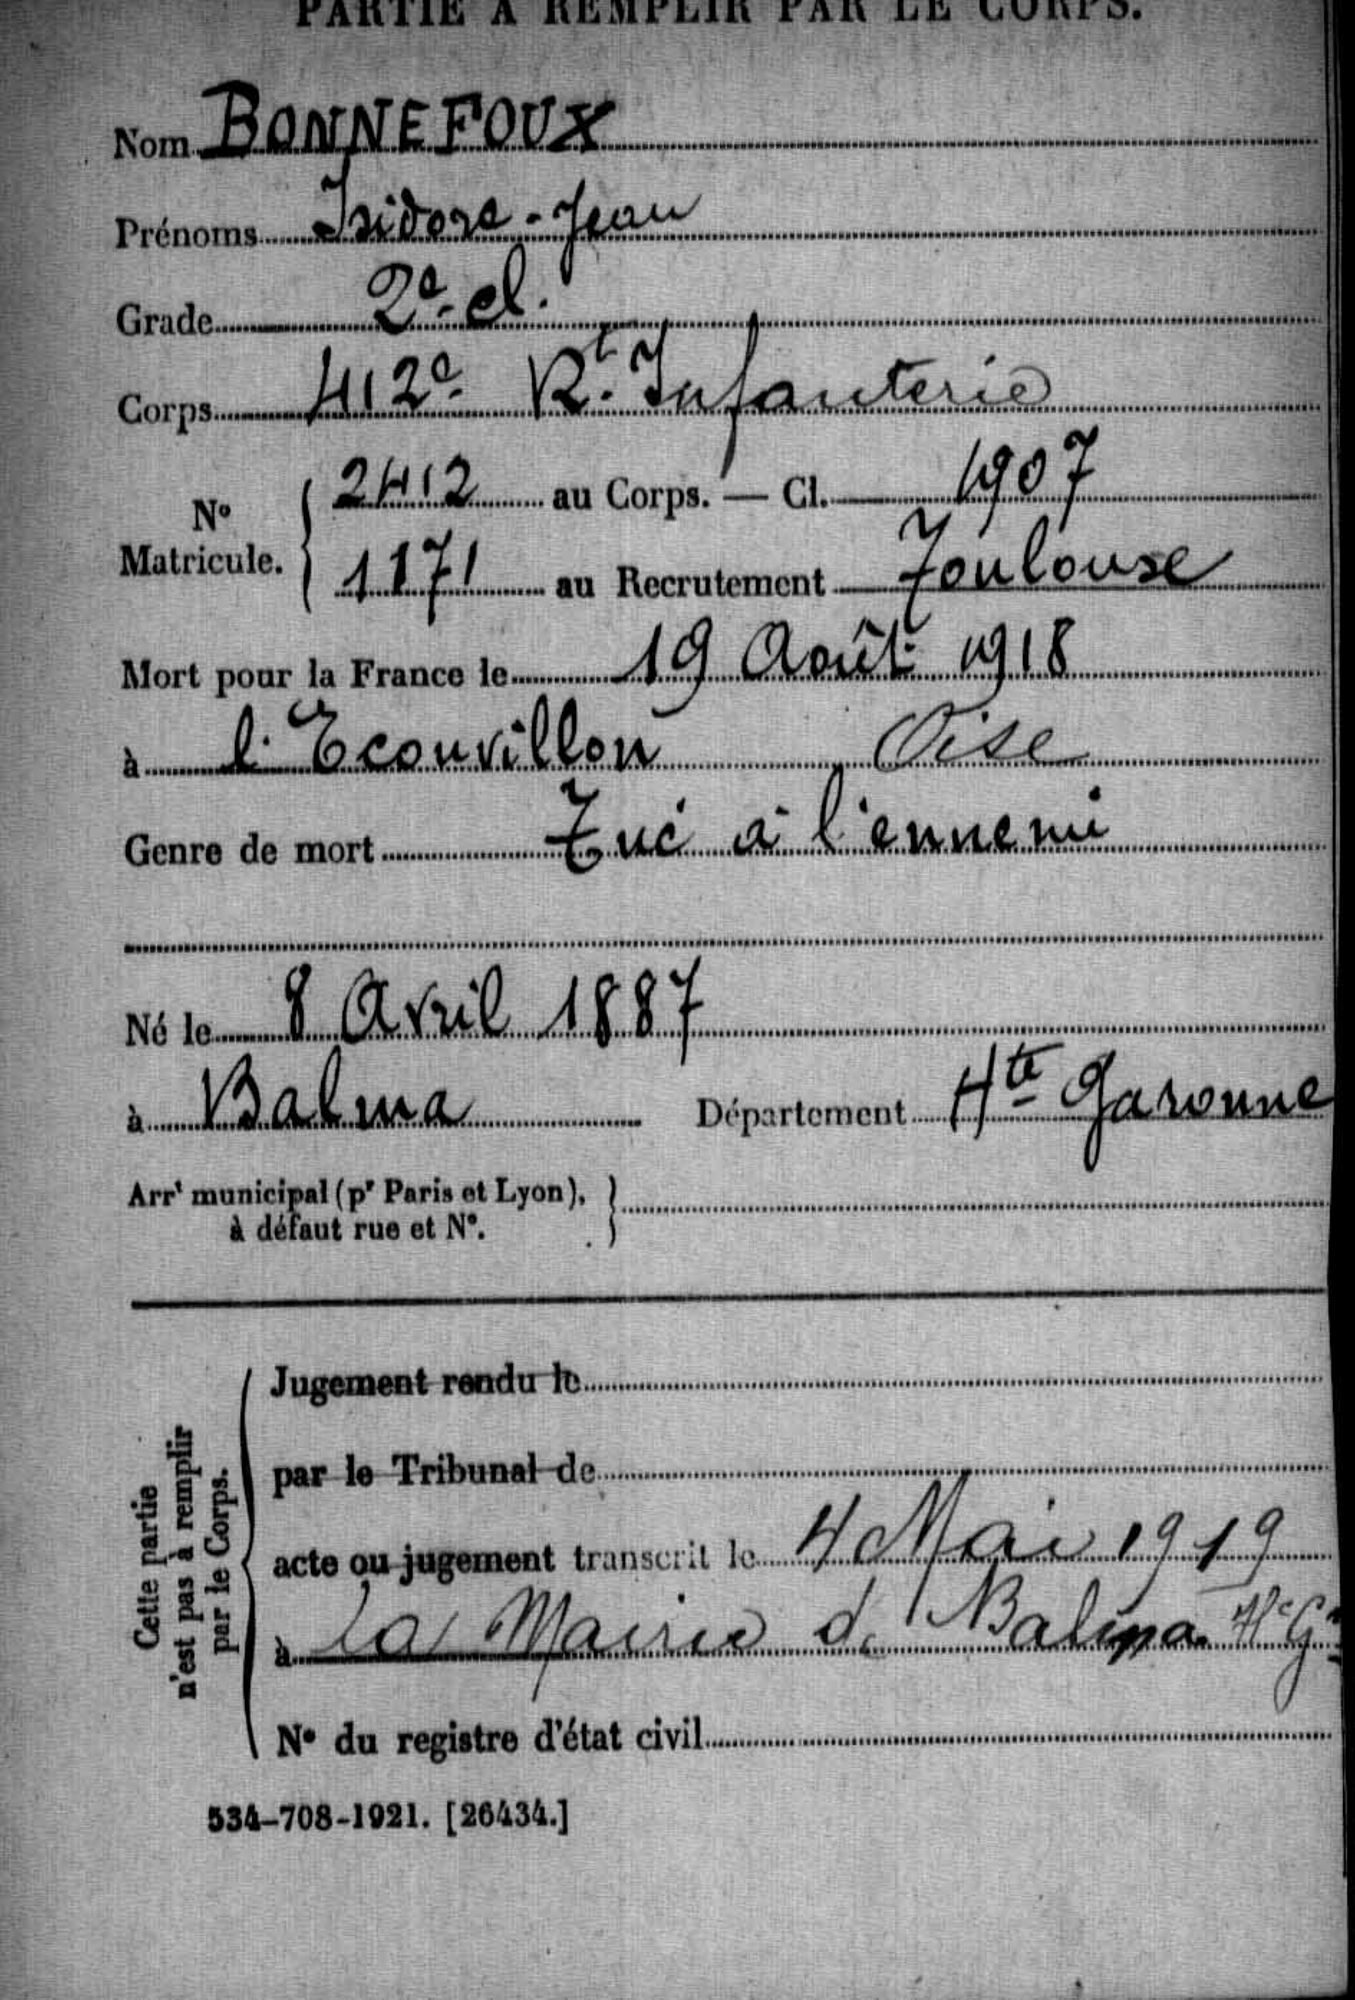 PARTIE A REMPLIR PAR LE CORPS.
Nom BONNEFOUX
Prénoms Isidore-Jean
Grade 2e cl.
Corps 412e Rt. Infanterie
No Matricule. { 2412 au Corps. — Cl. 1907
1171 au Recrutement Toulouse
Mort pour la France le 19 Août 1918
à l'Ecouvillon Oise
Genre de mort Tué à l'ennemi
Né le 8 Avril 1887
à Balma Département Hte Garonne
Arrt municipal (pr Paris et Lyon), }
à défaut rue et No.
Cette partie
n'est pas à remplir
par le Corps.
Jugement rendu le
par le Tribunal de
acte ou jugement transcrit le 4 Mai 1919
à la Mairie de Balma Hte Gne
No du registre d'état civil
534-708-1921. [26434.]